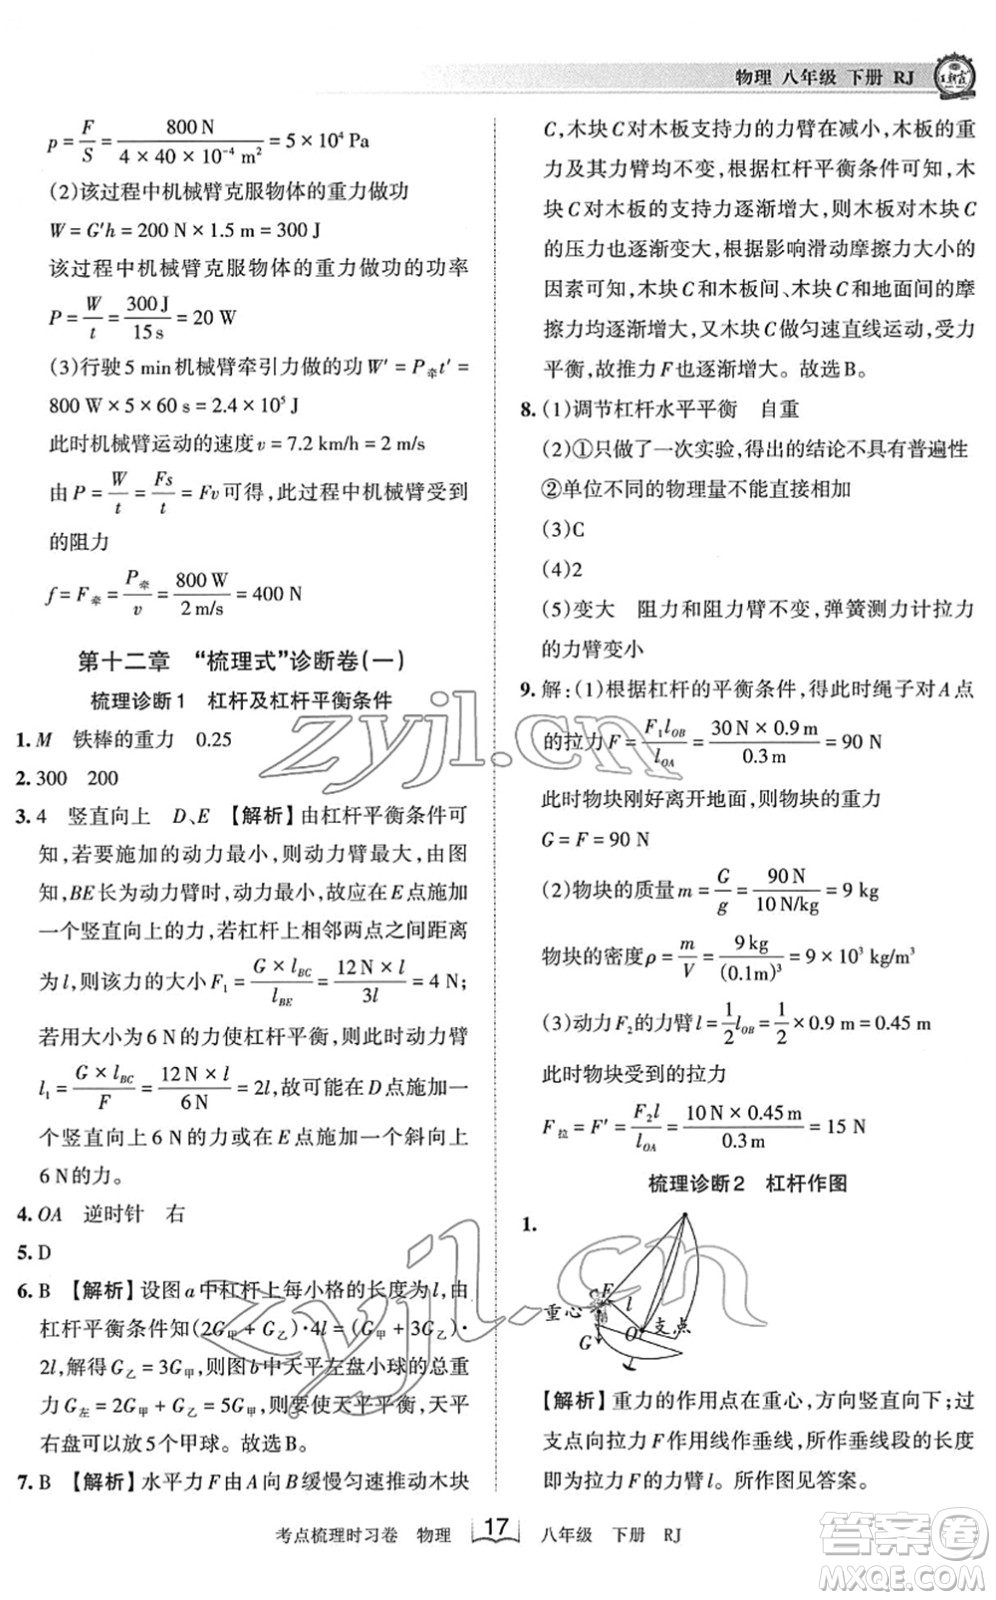 物理 八年级 下册 RJ
p = F/S = 800 N/(4 × 40 × 10⁻⁴ m²) = 5 × 10⁴ Pa
(2)该过程中机械臂克服物体的重力做功
W = G'h = 200 N × 1.5 m = 300 J
该过程中机械臂克服物体的重力做功的功率
P = W/t = 300 J/15 s = 20 W
(3)行驶 5 min 机械臂牵引力做的功 W' = P牵t' =
800 W × 5 × 60 s = 2.4 × 10⁵ J
此时机械臂运动的速度 v = 7.2 km/h = 2 m/s
由 P = W/t = Fs/t = Fv 可得,此过程中机械臂受到
的阻力
f = F牵 = P牵/v = 800 W/2 m/s = 400 N
第十二章 “梳理式”诊断卷(一)
梳理诊断1 杠杆及杠杆平衡条件
1. M 铁棒的重力 0.25
2. 300 200
3. 4 竖直向上 D、E 【解析】由杠杆平衡条件可
知,若要施加的动力最小,则动力臂最大,由图
知,BE长为动力臂时,动力最小,故应在E点施加
一个竖直向上的力,若杠杆上相邻两点之间距离
为l,则该力的大小F₁ = G × l_BC/l_BE = 12 N × l/3l = 4 N;
若用大小为6 N的力使杠杆平衡,则此时动力臂
l₁ = G × l_BC/F = 12 N × l/6 N = 2l,故可能在D点施加
一个竖直向上6 N的力或在E点施加一个斜向上
6 N的力。
4. OA 逆时针 右
5. D
6. B 【解析】设图a中杠杆上每小格的长度为l,由
杠杆平衡条件知(2G甲 + G乙)·4l = (G甲 + 3G乙)·
2l,解得G乙 = 3G甲,则图b中天平左盘小球的总重
力G左 = 2G甲 + G乙 = 5G甲,要使天平平衡,天平
右盘可以放5个甲球。故选B。
7. B 【解析】水平力F由A向B缓慢匀速推动木块
C,木块C对木板支持力的力臂在减小,木板的重
力及其力臂均不变,根据杠杆平衡条件可知,木
块C对木板的支持力逐渐增大,则木板对木块C
的压力也逐渐变大,根据影响滑动摩擦力大小的
因素可知,木块C和木板间、木块C和地面间的摩
擦力均逐渐增大,又木块C做匀速直线运动,受力
平衡,故推力F也逐渐增大。故选B。
8. (1)调节杠杆水平平衡 自重
(2)①只做了一次实验,得出的结论不具有普遍性
②单位不同的物理量不能直接相加
(3)C
(4)2
(5)变大 阻力和阻力臂不变,弹簧测力计拉力
的力臂变小
9. 解:(1)根据杠杆的平衡条件,得此时绳子对A点
的拉力F = F₁l_OB/l_OA = 30 N × 0.9 m/0.3 m = 90 N
此时物块刚好离开地面,则物块的重力
G = F = 90 N
(2)物块的质量m = G/g = 90 N/10 N/kg = 9 kg
物块的密度ρ = m/V = 9 kg/(0.1m)³ = 9 × 10³ kg/m³
(3)动力F₂的力臂l = 1/2 l_OB = 1/2 × 0.9 m = 0.45 m
此时物块受到的拉力
F拉 = F' = F₂l/l_OA = 10 N × 0.45 m/0.3 m = 15 N
梳理诊断2 杠杆作图
1.
F
重心
l
O
支点
G
【解析】重力的作用点在重心,方向竖直向下;过
支点向拉力F作用线作垂线,所作垂线段的长度
即为拉力F的力臂l。所作图见答案。
考点梳理时习卷 物理 17 八年级 下册 RJ
zyjl.cn
zyjl.cn
答案圈
MXQE.COM